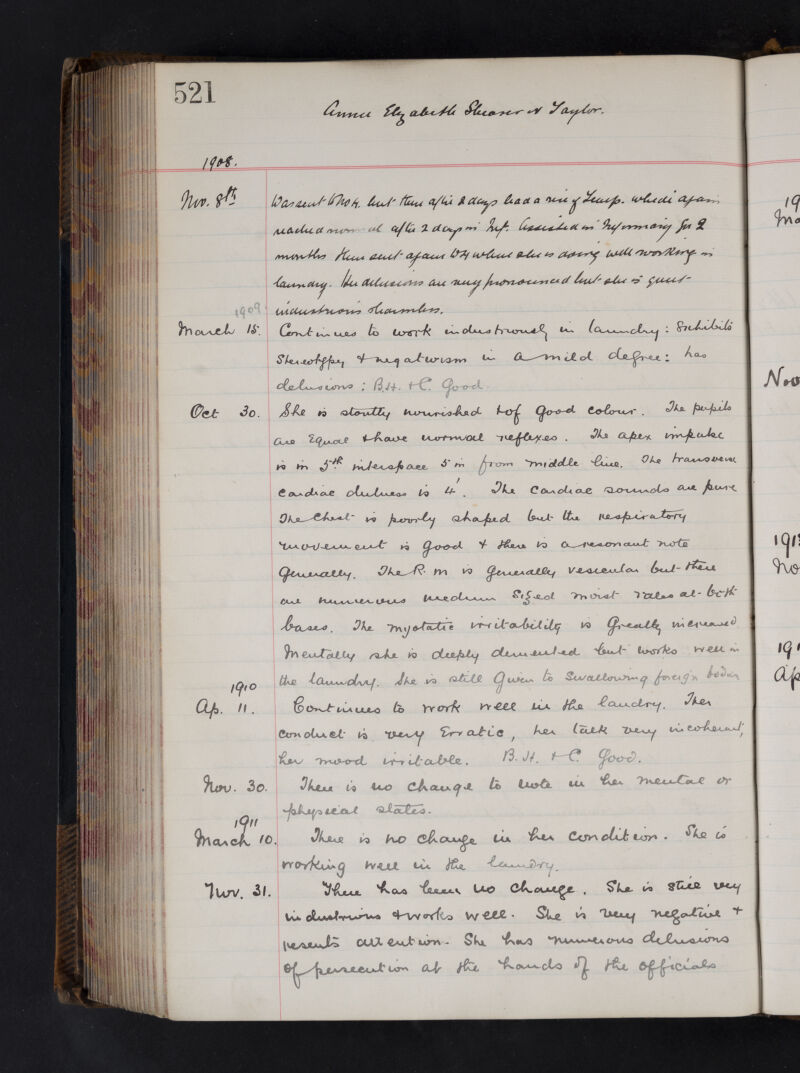 521
Annie Elizabeth Shearer or Taylor.
1908.
Nov. 8th Was sent to No 4. but then after 2 days had a rise of Temp. which again
reached normal after 2 days in Inf. Assisted in Infirmary for 2
months then sent again to 4 where she is doing well working in
laundry. Her delusions are very pronounced but she is quiet
industrious & harmless.
1909.
March 15. Continues to work industriously in laundry: Exhibits
Stereotypy & negativism in a mild degree: has
delusions: B.H. & C. Good.
Oct 30. She is stoutly nourished & of good colour. The pupils
are Equal & have normal reflexes. The apex impulse
is in 5th interspace 5 in from middle line. The transverse
cardiac dulness is 4'. The Cardiac sounds are pure
The Chest is poorly shaped but the respiratory
movement is good & there is a resonant note
Generally. The R. m is Generally vesicular but there
are numerous medium Sized moist rales at both
bases. The myotatic irritability is Greatly increased
Mentally she is deeply demented but works well in
the laundry. She is still Given to Swallowing foreign bodies
1910
Ap. 11. Continues to work well in the laundry. Her
conduct is very Erratic, her talk very incoherent,
her mood irritable. B.H. & C. Good.
Nov. 30. There is no change to note in her mental or
physical states.
1911
March 10. There is no change in her condition. She is
working well in the laundry.
Nov. 31. There has been no change. She is still very
industrious & works well. She is very negative &
resents attention. She has numerous delusions
of persecution at the hands of the officials
19
Ma
Nov
191
No
191
Ap